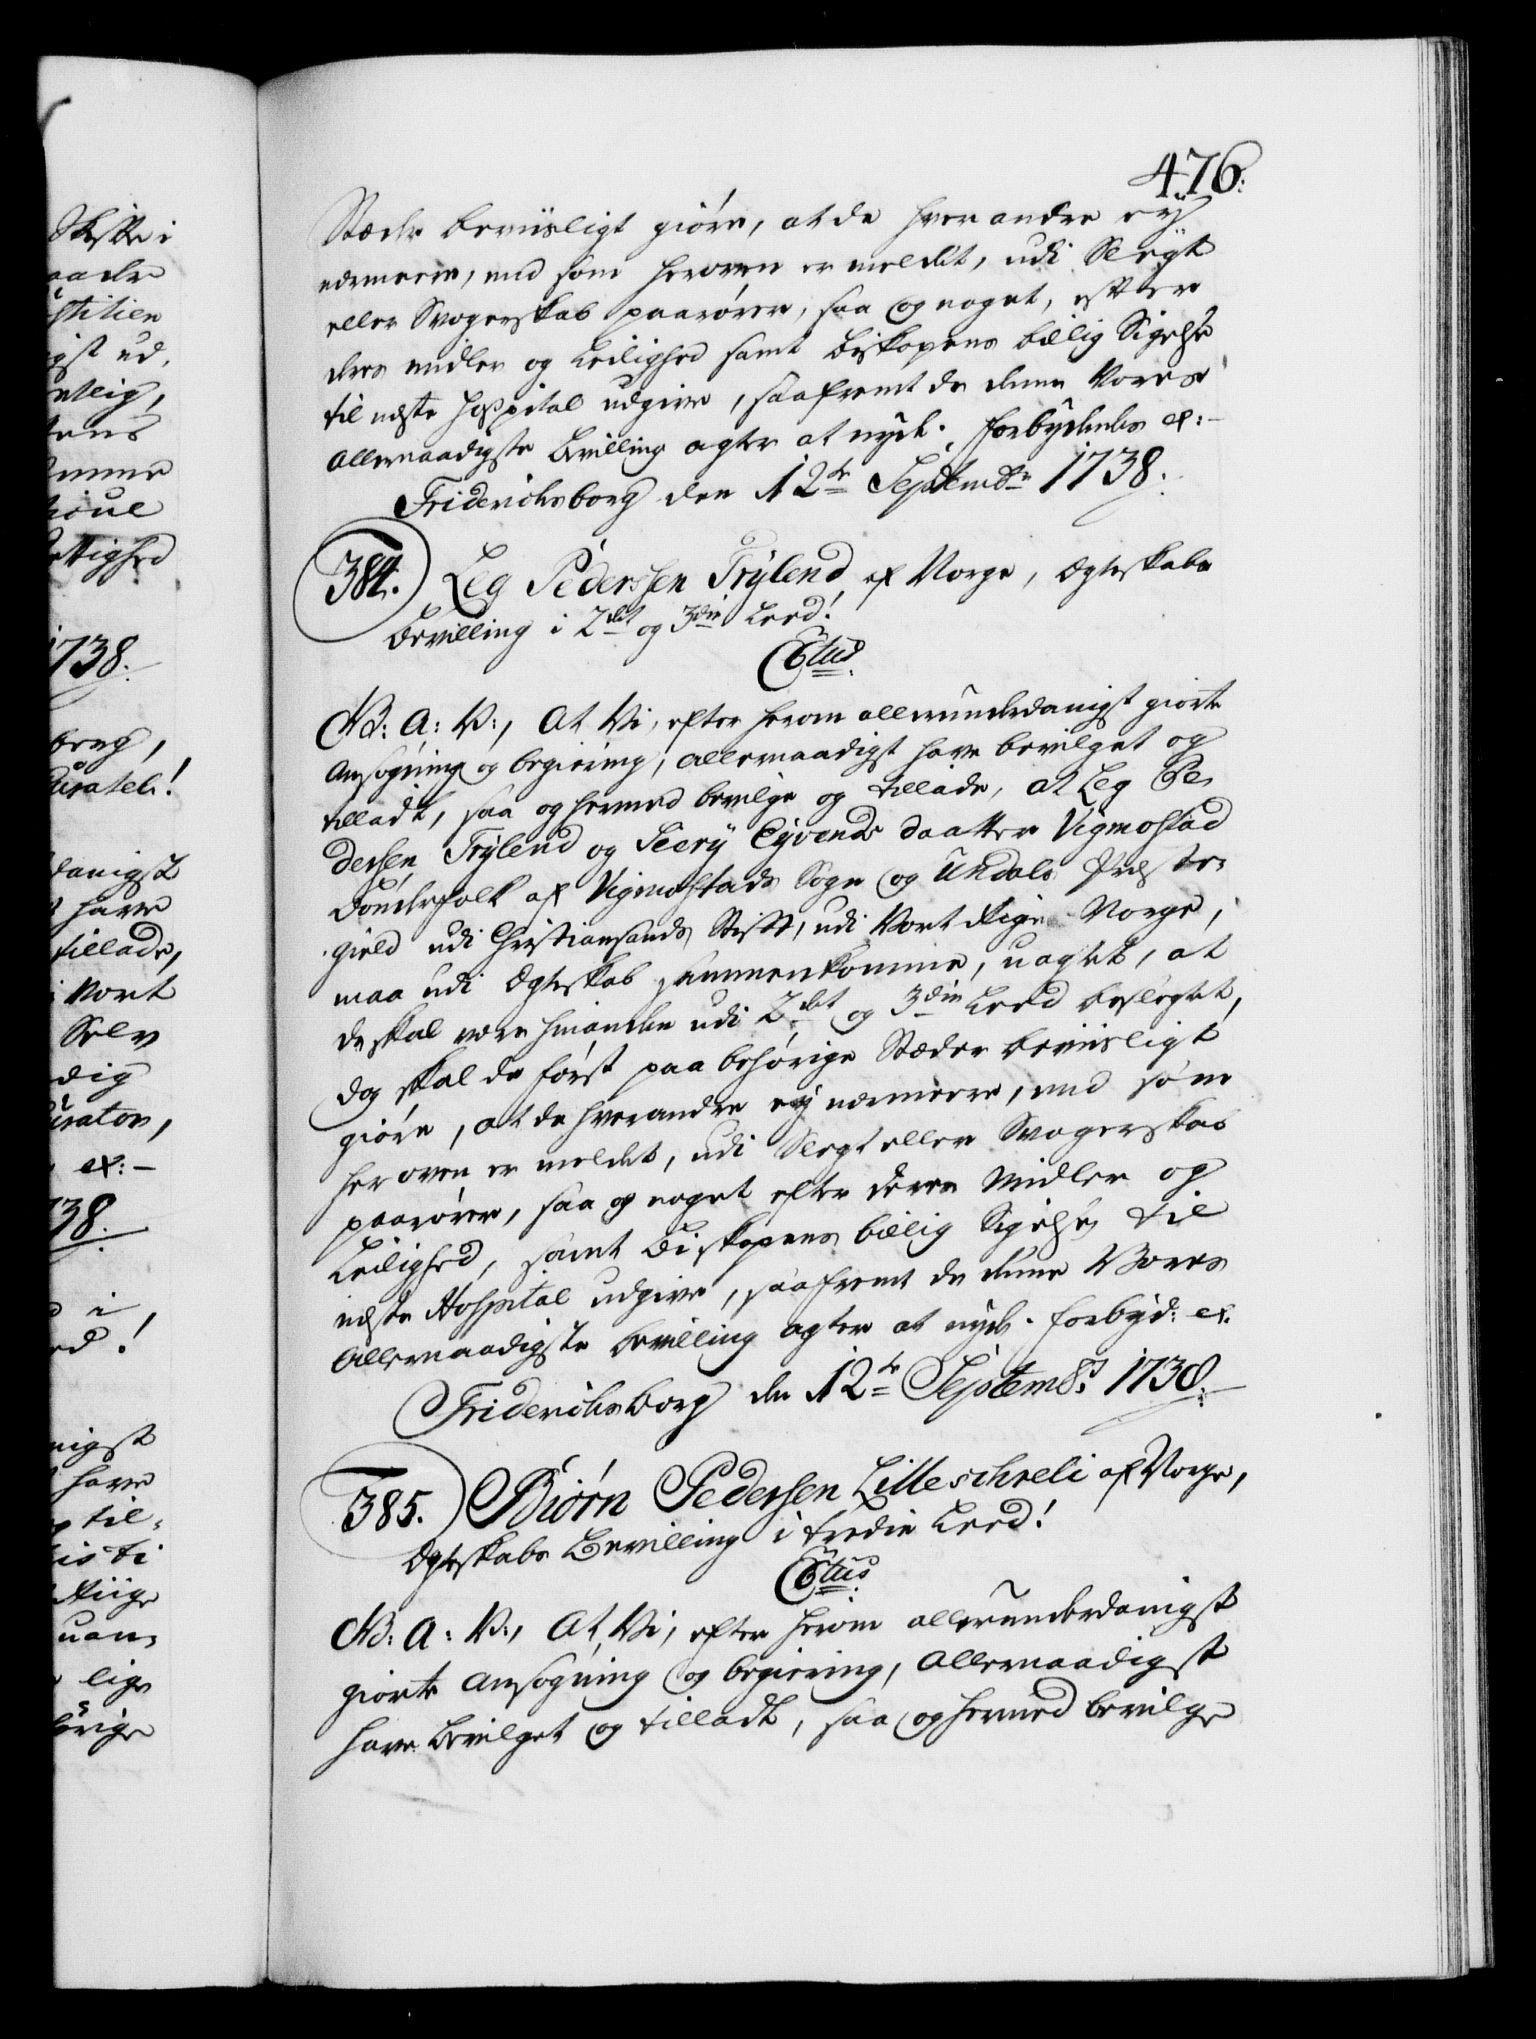 476.
Stæder beviisligt giöre, at de hverandre ey
nærmere, end som heroven er meldet, udi Slegt
eller Svogerskab paarörer, saa og noget, efter
deres midler og Leilighed samt Biskopens billig Sigelse
til næste Hospital udgive, saafremt de denne Vores
allernaadigste Bevilling agter at nyde. Forbydendes &:-
Friderichsborg den 12te Septembr 1738.
384. Leg Pederssen Trÿlend af Norge, Ægteskabs
Bevilling i 2det og 3die Leed!
C6tus.
W: A: V:, At Vi, efter herom allerunderdanigst giorte
Ansøgning og begiering, allernaadigst have bevilget og
tilladt, saa og hermed bevilge og tillade, at Leg Pe-
dersen Trÿlend og Siery Eÿvends daatter Vigmostad
Bönderfolk af Vigmostads Sogn og Undals Præste-
gield udi Christiansands Stift, udi Vort Rige Norge,
maa udi Ægteskab sammenkomme, uagtet, at
de skal være hinanden udi 2det og 3die Leed beslegtet,
dog skal de först paa behörige Stæder beviisligt
giöre, at de hverandre ey nærmere, end som
her oven er meldet, udi Slegt eller Svogerskab
paarörer, saa og noget efter deres Midler og
Leilighed, samt Biskopens billig Sigelse til
næste Hospital udgive, saafremt de denne Vores
Allernaadigste Bevilling agter at nyde. Forbyd: &.
Friderichsborg den 12te Septem8r. 1738.
385. Biörn Pedersen Lilleschreli af Norge,
Ægteskabs Bevilling i tredie Leed!
C6tus.
W: A: V:, At Vi, efter herom allerunderdanigst
giorte Ansøgning og begiering, Allernaadigst
have Bevilget og tilladt, saa og hermed bevilge